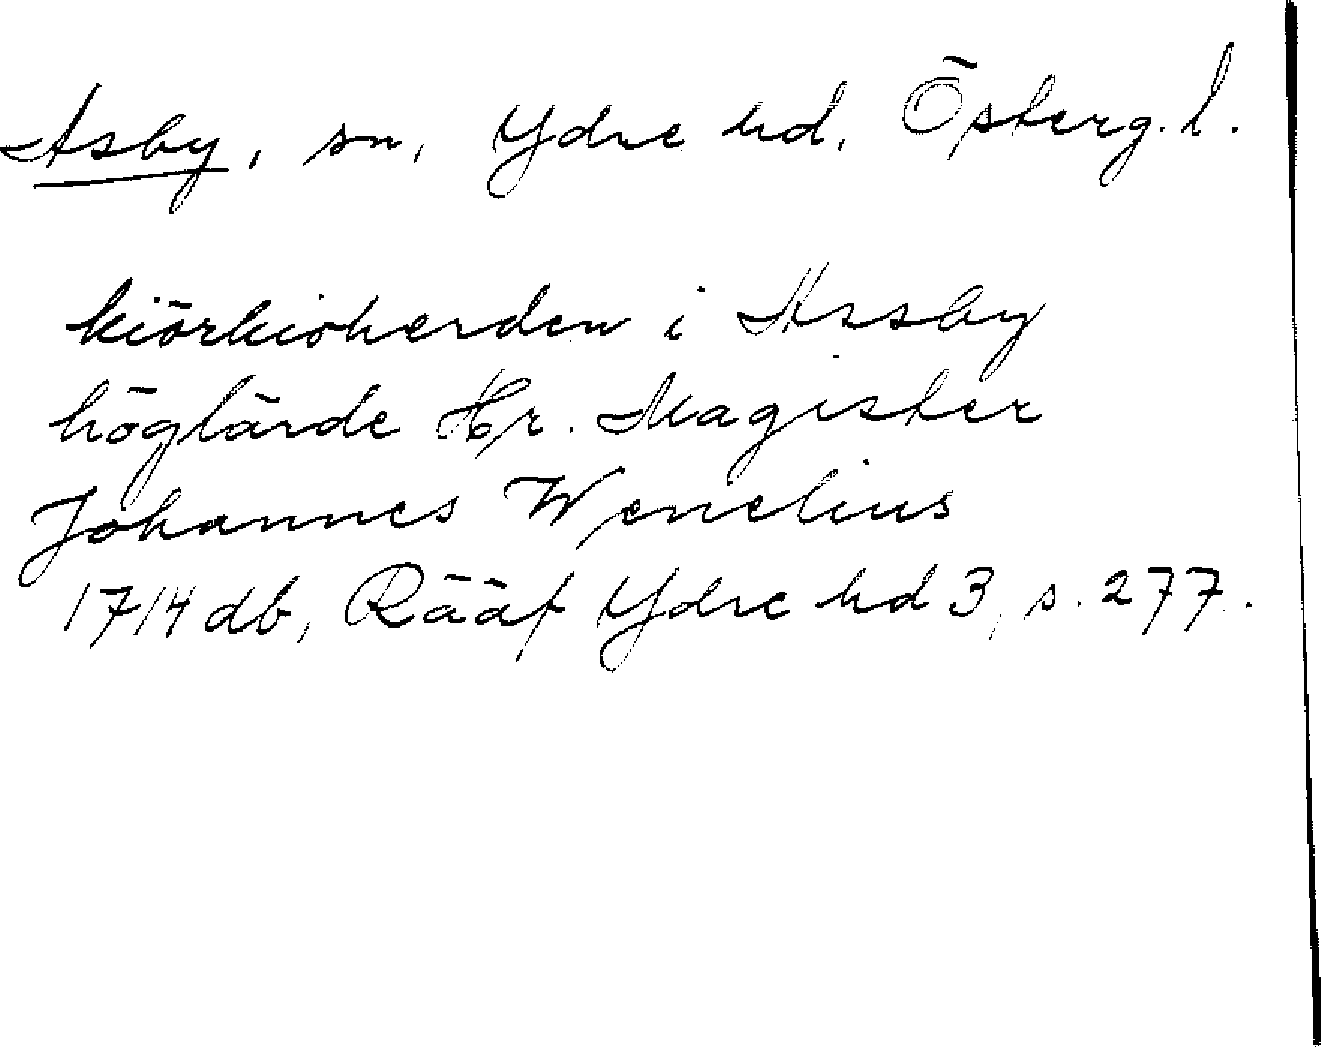 Asby, sn, Ydre hd, Österg. l.
kiörkioherden i Assby
höglärde Hr. Magister
Johannes Wenelius
1714 db, Rääf Ydre hd 3, s. 277.